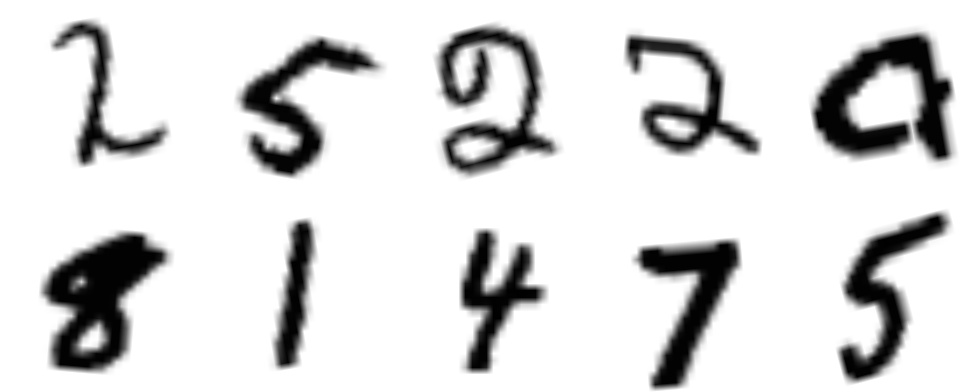 2 5 2 2 9
8 1 4 7 5